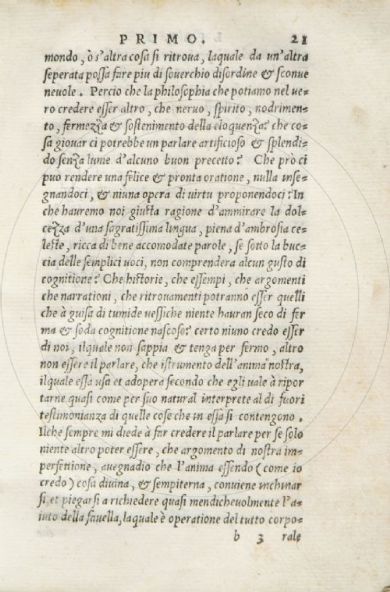 PRIMO. 21
mondo, ò s'altra cosa si ritroua, laquale da un'altra
seperata possa fare piu di souerchio disordine & sconue
neuole. Percio che la philosophia che potiamo nel ue-
ro credere esser altro, che neruo, spirito, nodrimen-
to, fermezza & sostenimento della eloquenza? che co-
sa giouar ci potrebbe un parlare artificioso & splendi-
do senza lume d'alcuno buon precetto? Che prò ci
puo rendere una felice & pronta oratione, nulla inse-
gnandoci, & niuna opera di uirtu proponendoci? In
che hauremo noi giusta ragione d'ammirare la dol-
cezza d'una sagratissima lingua, piena d'ambrosia ce-
leste, ricca di bene accomodate parole, se sotto la buc-
cia delle semplici uoci, non comprendera alcun gusto di
cognitione? Che historie, che essempi, che argomenti
che narrationi, che ritrouamenti potranno esser quelli
che à guisa di tumide uessiche niente hauran seco di fer
ma & soda cognitione nascoso? certo niuno credo esser
di noi, ilquale non sappia & tenga per fermo, altro
non essere il parlare, che istrumento dell'anima nostra,
ilquale essa usa et adopera secondo che egli uale à ripor
tarne quasi come per suo natural interprete al di fuori
testimonianza di quelle cose che in essa si contengono.
Ilche sempre mi diede à far credere il parlare per se solo
niente altro poter essere, che argomento di nostra im-
perfettione, auegnadio che l'anima essendo (come io
credo) cosa diuina, & sempiterna, conuiene inchinar
si et piegarsi a richiedere quasi mendicheuolmente l'a-
iuto della fauella, laquale è operatione del tutto corpo-
b 3 rale